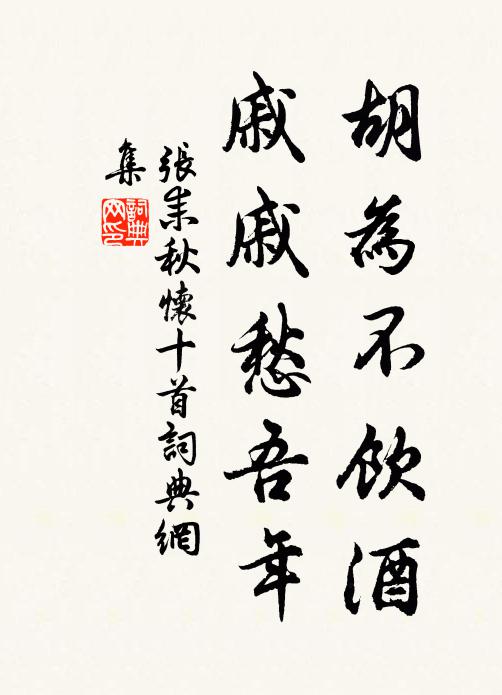 胡為不飲酒
戚戚愁吾年
張耒秋懷十首詞典網
集
詞典
网印